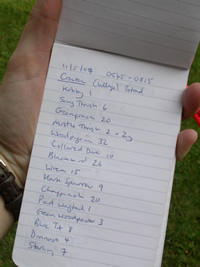 11/5/08 0545-0815
Cowen (village) Total
Song Thrush 6
Greenfinch 20
Mistle Thrush 2 + 2y
Woodpigeon 32
Collared Dove 14
Blackbird 26
Wren 15
House Sparrow 9
Chaffinch 20
Pied Wagtail 1
Green Woodpecker 3
Blue Tit 8
Dunnock 4
Starling 7